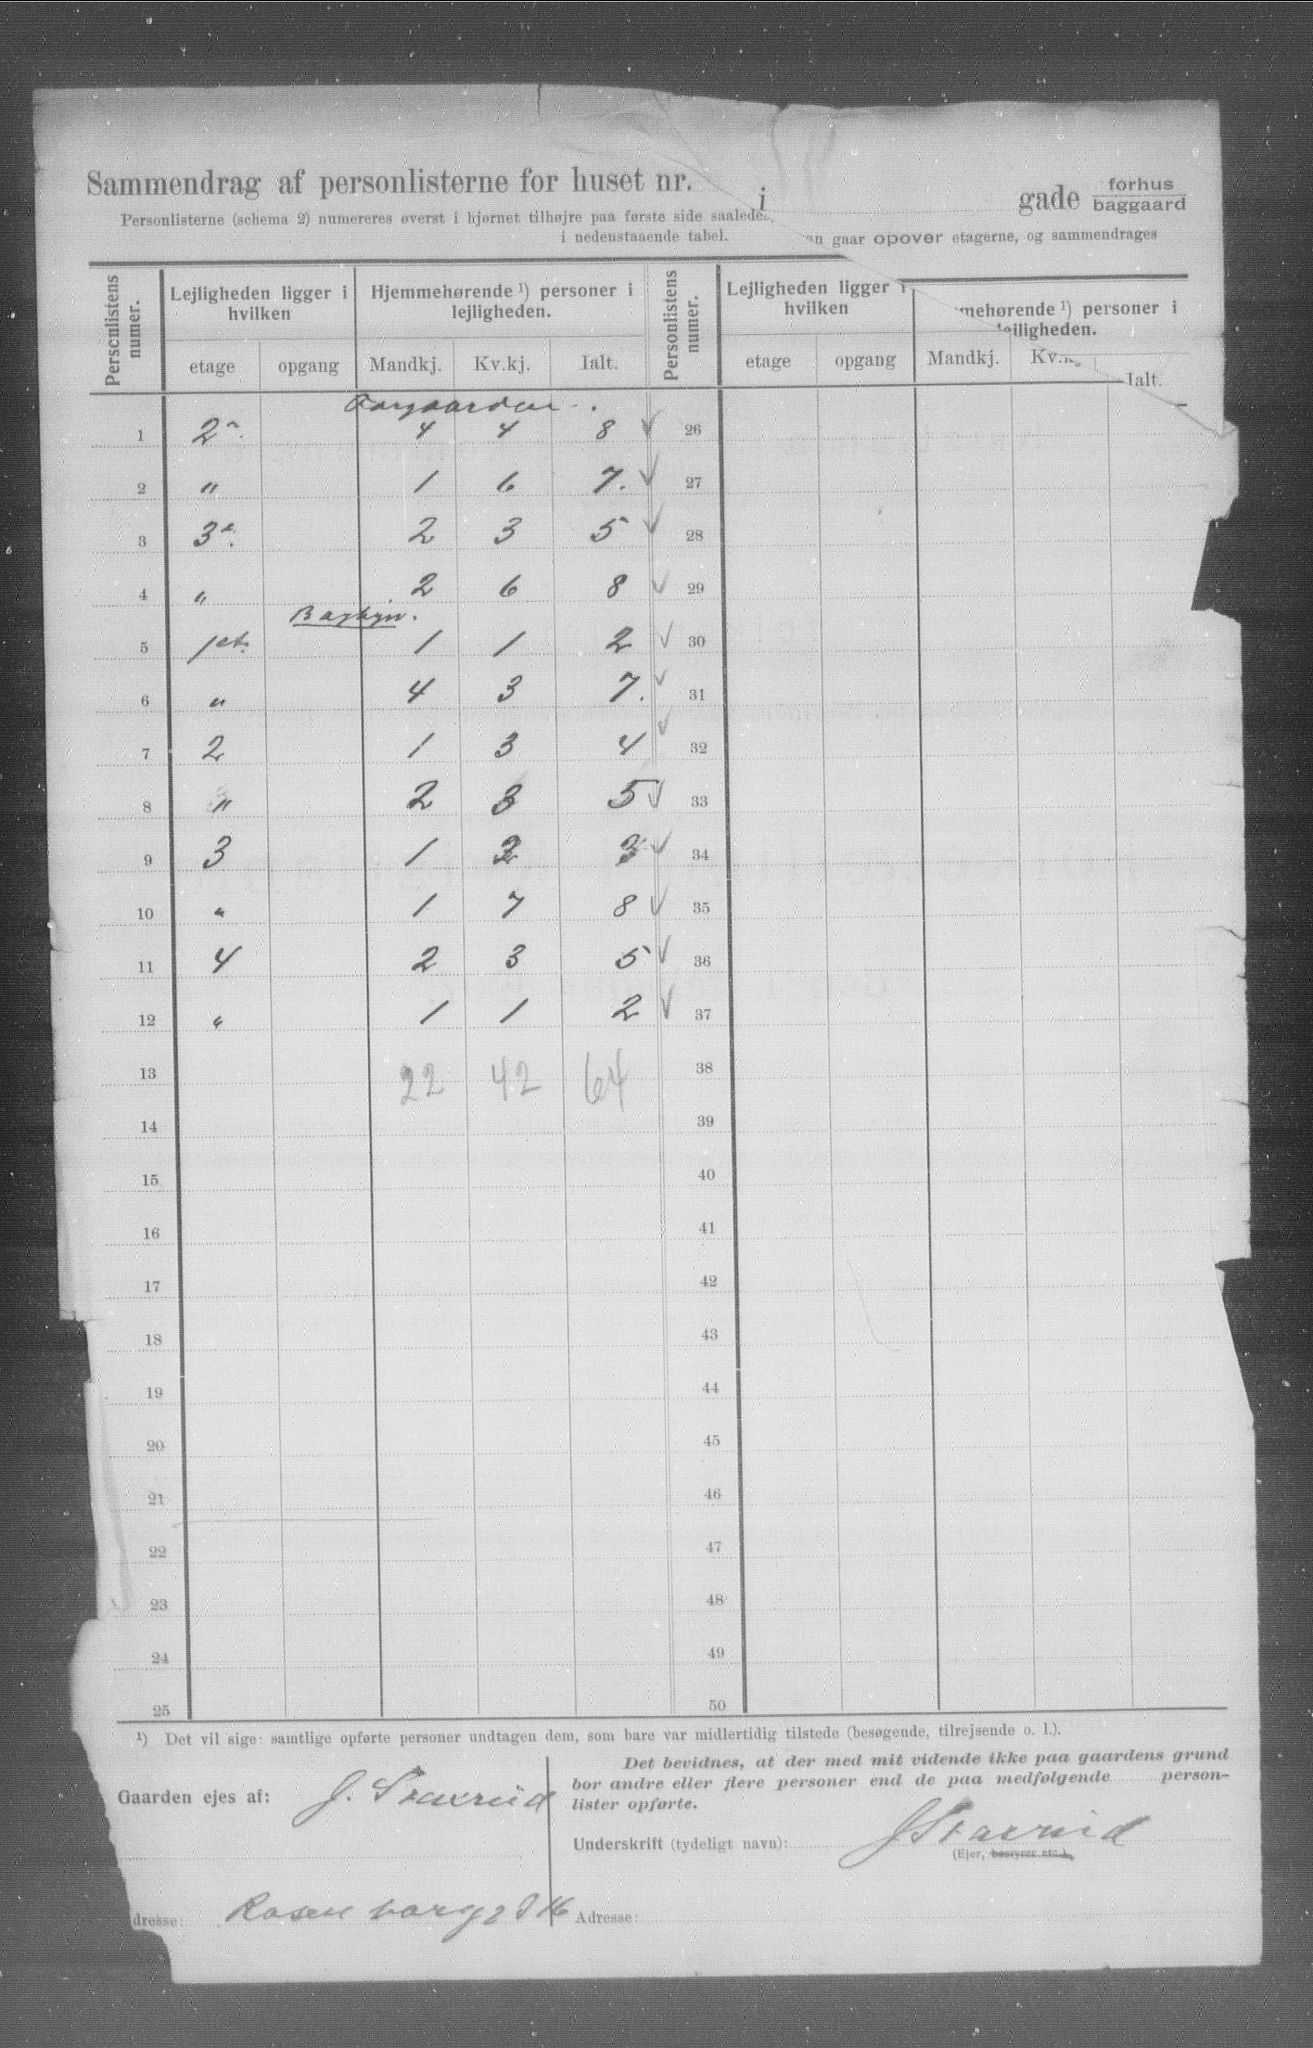 Sammendrag af personlisterne for huset nr. i gade forhus baggaard
Personlisterne (schema 2) numereres øverst i hjørnet tilhøjre paa første side saaledes,
i nedenstaaende tabel. gaar opover etagerne, og sammendrages
Personlistens numer. Lejligheden ligger i hvilken Hjemmehørende ¹) personer i lejligheden. Personlistens numer. Lejligheden ligger i hvilken personer i lejligheden.
etage opgang Mandkj. Kv.kj. Ialt. etage opgang Mandkj. Ialt.
1 2 4 4 8 26
2 " 1 6 7. 27
3 3 2 3 5 28
4 " 2 6 8 29
5 1 et. 1 1 2 30
6 " 4 3 7. 31
7 2 1 3 4 32
8 " 2 3 5 33
9 3 1 2 3 34
10 " 1 7 8 35
11 4 2 3 5 36
12 " 1 1 2 37
13 22 42 64 38
14 39
15 40
16 41
17 42
18 43
19 44
20 45
21 46
22 47
23 48
24 49
25 50
¹) Det vil sige: samtlige opførte personer undtagen dem, som bare var midlertidig tilstede (besøgende, tilrejsende o. l.).
Gaarden ejes af: J. Staxrud
Det bevidnes, at der med mit vidende ikke paa gaardens grund
bor andre eller flere personer end de paa medfølgende person-
lister opførte.
Underskrift (tydeligt navn): J Staxrud
(Ejer, bestyrer etc.)
dresse: Rosenborgg 16 Adresse: